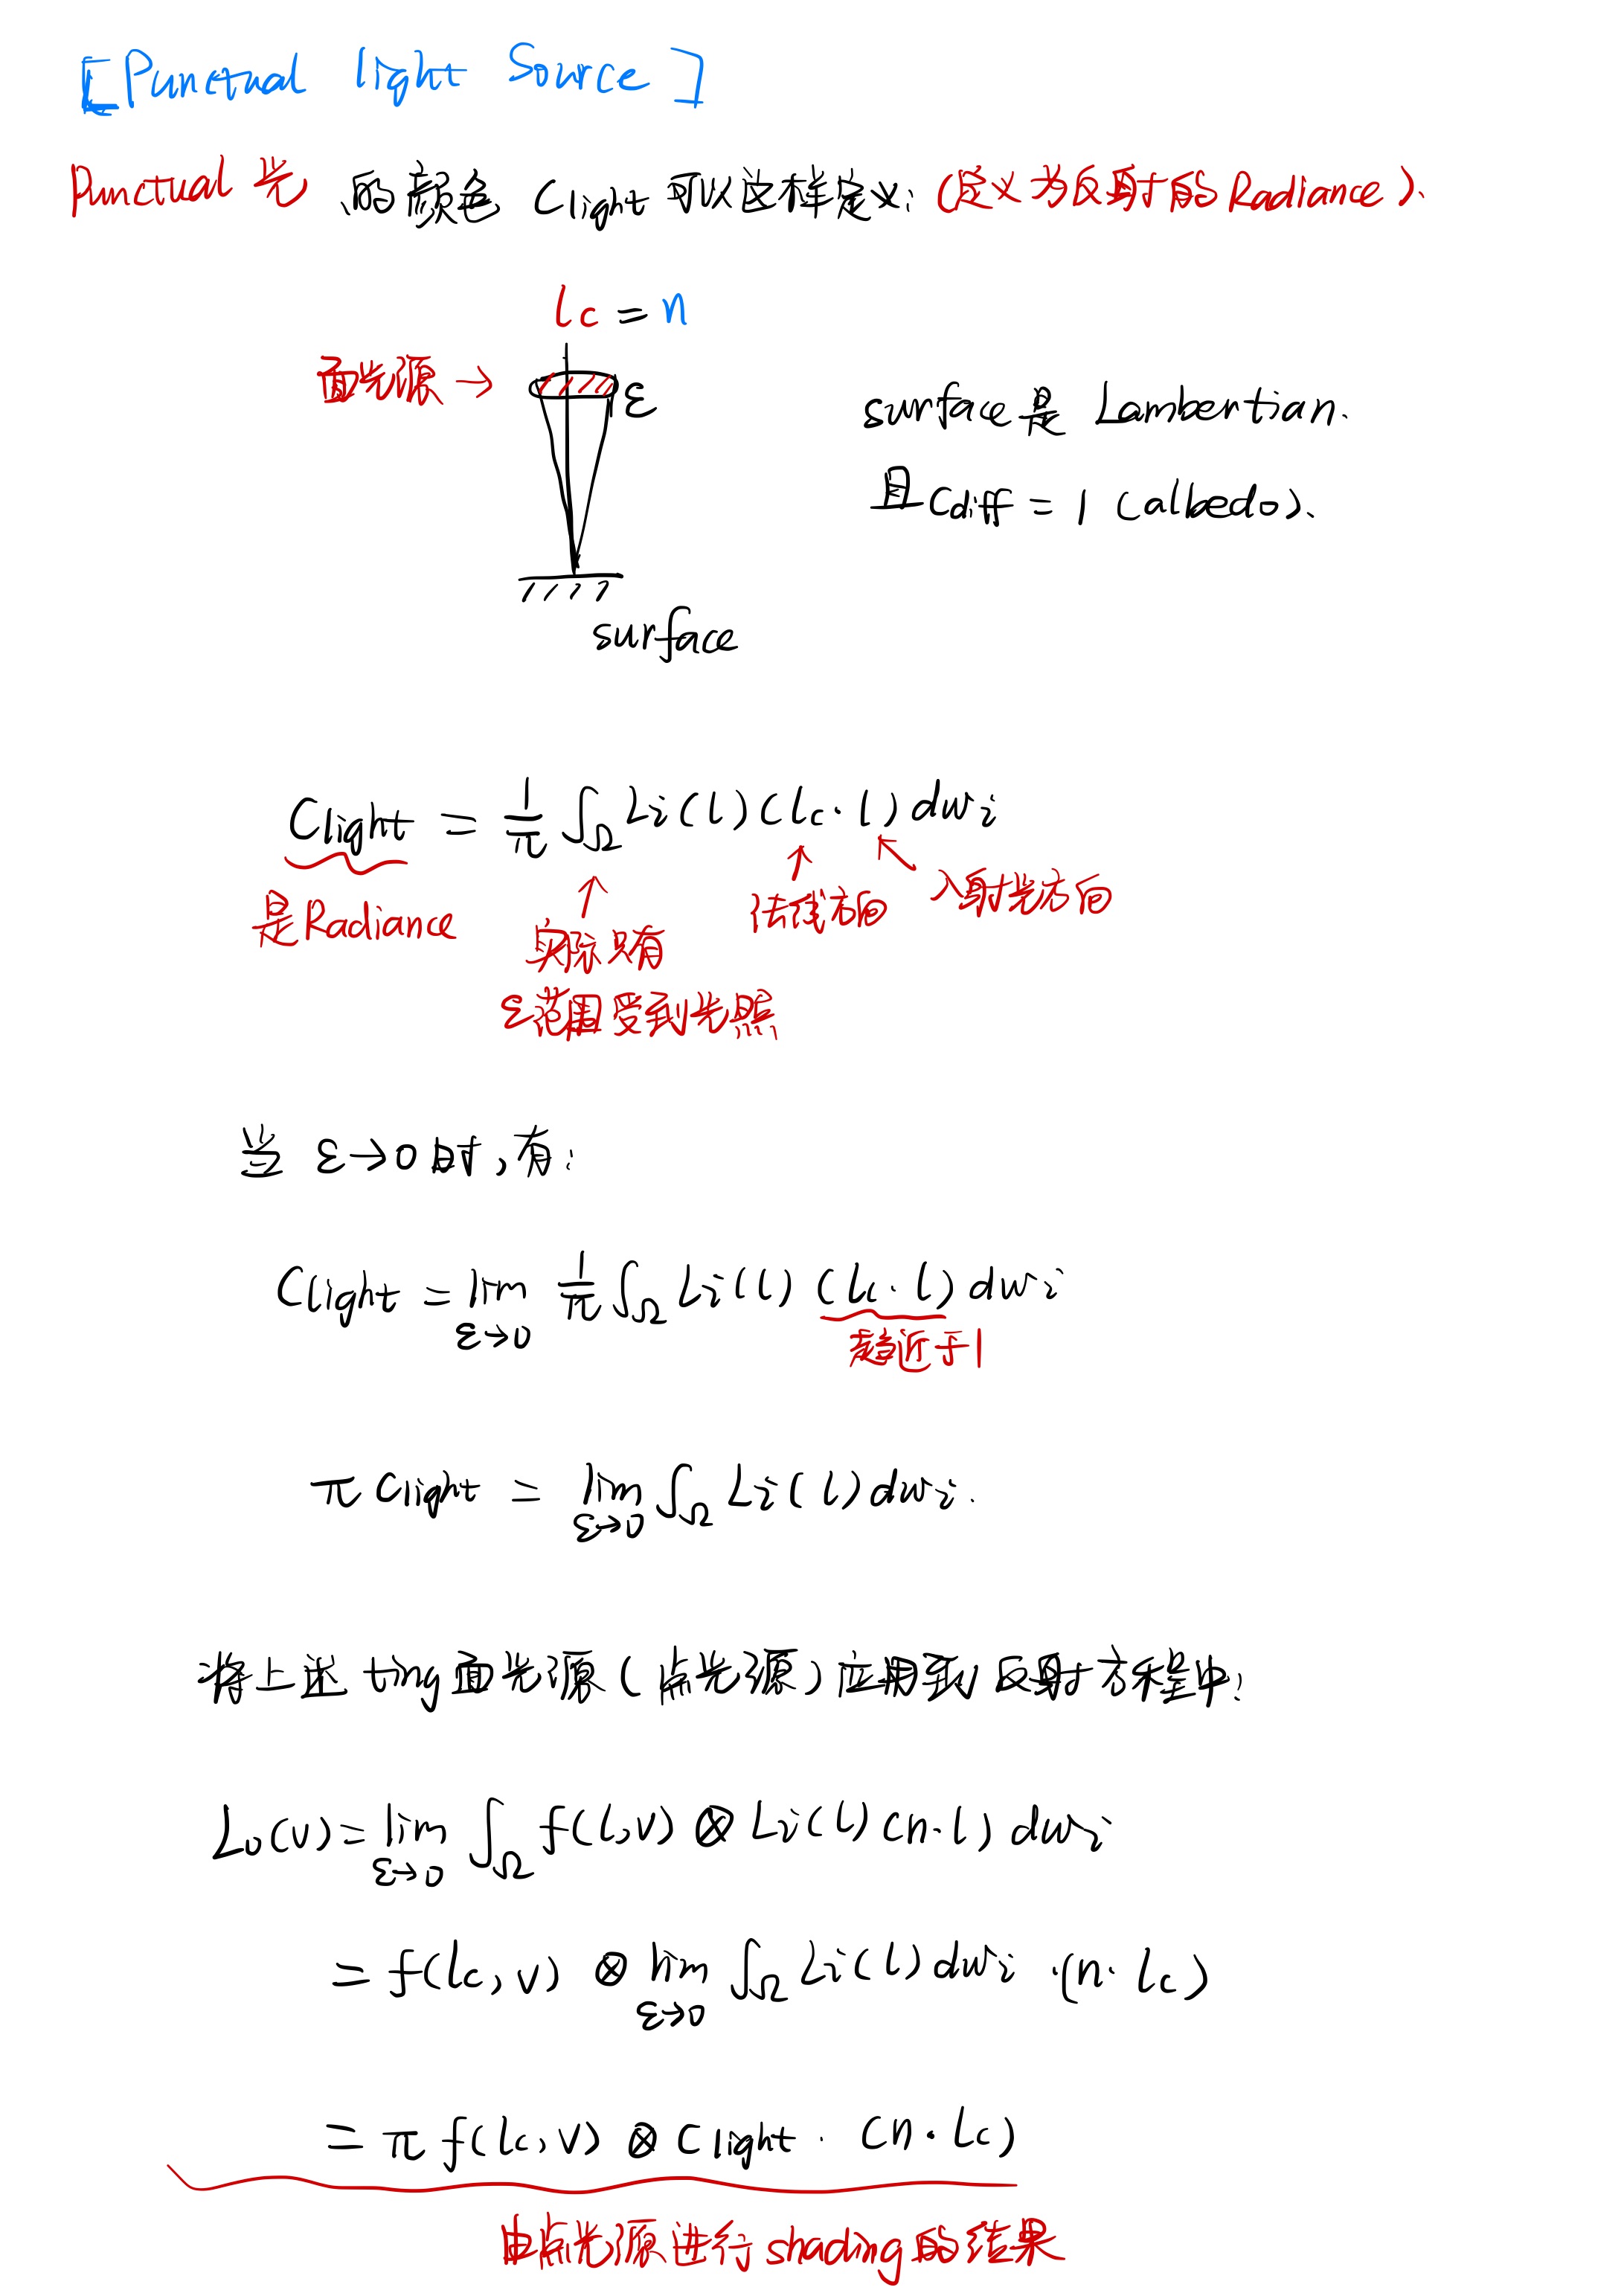 [Punctual light Source]
Punctual 光 的颜色 Clight 可以这样定义: (定义为反射的Radiance).
lc = n
面光源 →
ε
surface是 Lambertian.
且Cdiff = 1 (albedo).
surface
Clight = 1/π ∫Ω Li(l)(lc·l) dωi
是Radiance
实际只有
ε范围受到光照
法线方向
入射光方向
当 ε→0 时,有:
Clight = lim ε→0 1/π ∫Ω Li(l) (lc·l) dωi
趋近于1
π Clight = lim ε→0 ∫Ω Li(l) dωi.
将上述 ting面光源(点光源)应用到反射方程中:
Lo(v) = lim ε→0 ∫Ω f(l,v) ⊗ Li(l) (n·l) dωi
= f(lc, v) ⊗ lim ε→0 ∫Ω Li(l) dωi ·(n·lc)
= π f(lc, v) ⊗ Clight · (n·lc)
由点光源进行shading的结果